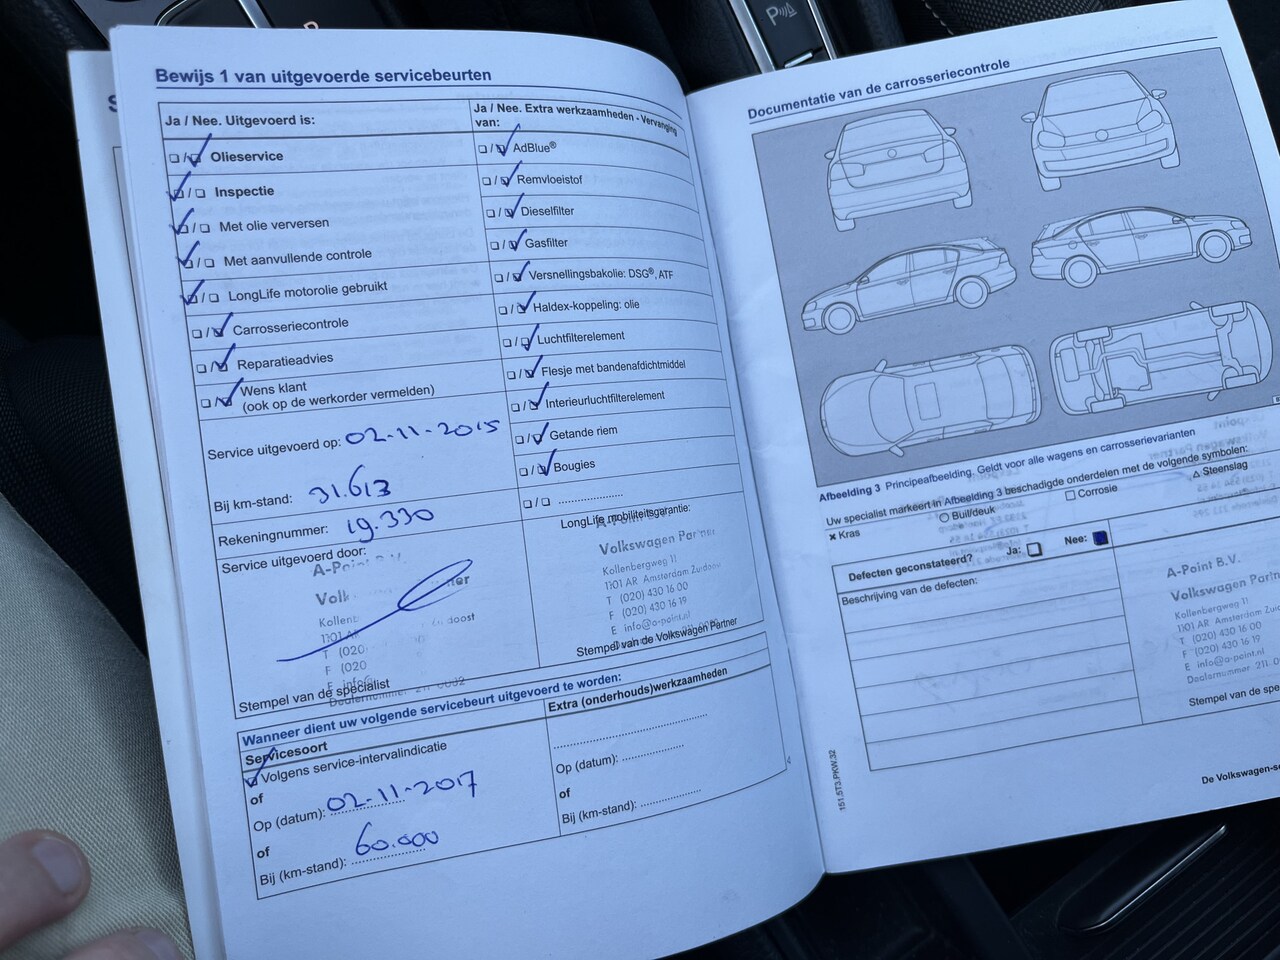 Bewijs 1 van uitgevoerde servicebeurten
Ja / Nee. Uitgevoerd is:
Ja / Nee. Extra werkzaamheden - Vervanging van:
Olieservice
Inspectie
Met olie verversen
Met aanvullende controle
LongLife motorolie gebruikt
Carrosseriecontrole
Reparatieadvies
Wens klant
(ook op de werkorder vermelden)
AdBlue®
Remvloeistof
Dieselfilter
Gasfilter
Versnellingsbakolie: DSG®, ATF
Haldex-koppeling: olie
Luchtfilterelement
Flesje met bandenafdichtmiddel
Interieurluchtfilterelement
Getande riem
Bougies
Service uitgevoerd op: 02-11-2015
Bij km-stand: 31.613
Rekeningnummer: 19.330
Service uitgevoerd door:
A-Point B.V.
Stempel van de specialist
LongLife mobiliteitsgarantie:
Volkswagen Partner
Kollenbergweg 11
1101 AR Amsterdam Zuidoost
T (020) 430 16 00
F (020) 430 16 19
E info@a-point.nl
Stempel van de Volkswagen Partner
Wanneer dient uw volgende servicebeurt uitgevoerd te worden:
Servicesoort
Volgens service-intervalindicatie
of
Op (datum): 02-11-2017
of
Bij (km-stand): 60.000
Extra (onderhouds)werkzaamheden
Op (datum):
of
Bij (km-stand):
4
Documentatie van de carrosseriecontrole
Afbeelding 3 Principeafbeelding. Geldt voor alle wagens en carrosserievarianten
Uw specialist markeert in Afbeelding 3 beschadigde onderdelen met de volgende symbolen:
× Kras
○ Buil/deuk
□ Corrosie
△ Steenslag
Defecten geconstateerd?
Ja:
Nee:
Beschrijving van de defecten:
A-Point B.V.
Volkswagen Partn
Kollenbergweg 11
1101 AR Amsterdam Zui
T (020) 430 16 00
F (020) 430 16 19
E info@a-point.nl
Dealernummer 211
Stempel van de spe
151.5T3.PKW.32
De Volkswagen-se
P